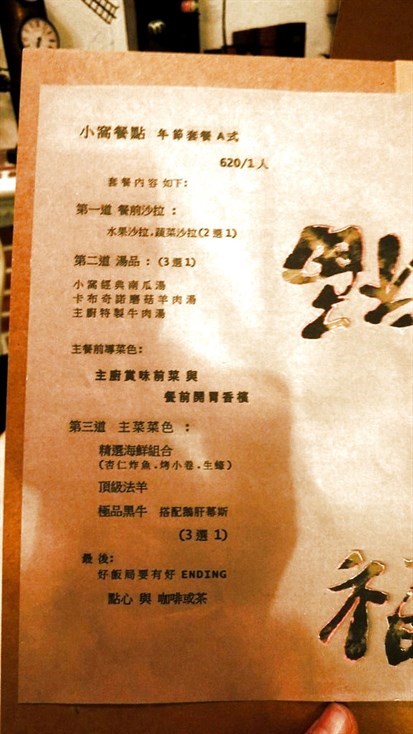 小窩餐點 年節套餐 A式
620/1人
套餐內容 如下:
第一道 餐前沙拉 :
水果沙拉.蔬菜沙拉(2選1)
第二道 湯品 : (3選1)
小窩經典南瓜湯
卡布奇諾蘑菇羊肉湯
主廚特製牛肉湯
主餐前導菜色:
主廚賞味前菜 與
餐前開胃香檳
第三道 主菜菜色 :
精選海鮮組合
(杏仁炸魚.烤小卷.生蠔)
頂級法羊
極品黑牛 搭配鵝肝慕斯
(3選1)
最後:
好飯局要有好 ENDING
點心 與 咖啡或茶